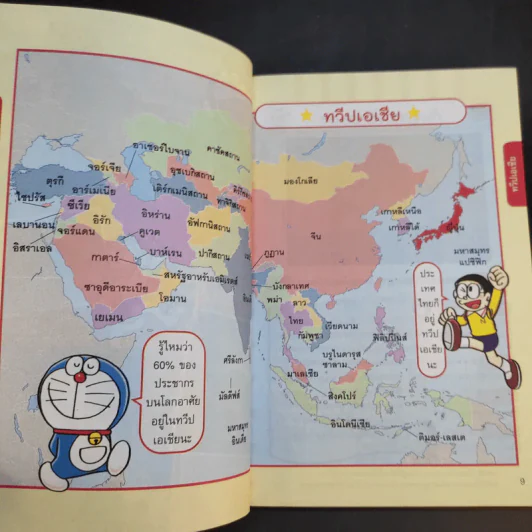 ทวีปเอเชีย
ทวีปเอเชีย
จอร์เจีย
อาเซอร์ไบจาน
คาซัคสถาน
อุซเบกิสถาน
ตุรกี
อาร์เมเนีย
เติร์กเมนิสถาน
ไซปรัส
ซีเรีย
เลบานอน
อิรัก
อิหร่าน
อัฟกานิสถาน
อิสราเอล
จอร์แดน
คูเวต
ปากีสถาน
กาตาร์
บาห์เรน
สหรัฐอาหรับเอมิเรตส์
ซาอุดีอาระเบีย
โอมาน
เยเมน
ศรีลังกา
มัลดีฟส์
มหาสมุทร
อินเดีย
รู้ไหมว่า
60% ของ
ประชากร
บนโลกอาศัย
อยู่ในทวีป
เอเชียนะ
มองโกเลีย
เกาหลีเหนือ
เกาหลีใต้
ญี่ปุ่น
จีน
มหาสมุทร
แปซิฟิก
ภูฏาน
บังกลาเทศ
พม่า
ลาว
ไทย
เวียดนาม
กัมพูชา
ฟิลิปปินส์
บรูไนดารุส
ซาลาม
มาเลเซีย
สิงคโปร์
อินโดนีเซีย
ติมอร์-เลสเต
ประ
เทศ
ไทยก็
อยู่
ทวีป
เอเชีย
นะ
9